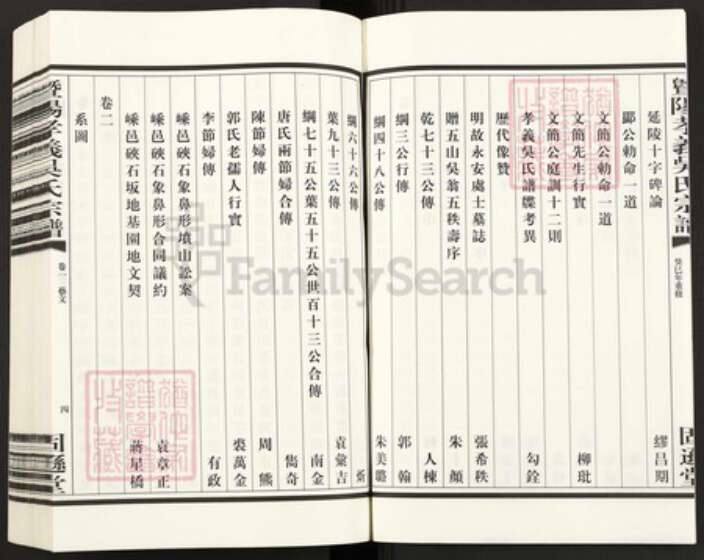 暨陽孝義吳氏宗譜
癸巳年重修
延陵十字碑論 繆昌期
鄮公勅命一道
文簡公勅命一道
文簡先生行實 柳玭
文簡公庭訓十二則
孝義吳氏譜牒考異 勾銓
歷代像贊
明故永安處士墓誌 張希秩
贈五山吳翁五秩壽序 朱顏
乾七十三公傳 人棟
綱三公行傳 郭翰
綱四十八公傳 朱美璐
綱六十六公傳
葉九十三公傳 袁彙吉
綱七十五公葉五十五公世百十三公合傳 南金
唐氏兩節婦合傳 儁奇
陳節婦傳 周熊
郭氏老孺人行實 裘萬金
李節婦傳 有政
嵊邑硤石象鼻形墳山訟案
嵊邑硤石象鼻形合同議約 袁章正
嵊邑硤石坂地基園地文契 蔣星橋
卷二
系圖
暨陽孝義吳氏宗譜
卷一 藝文
四
FamilySearch